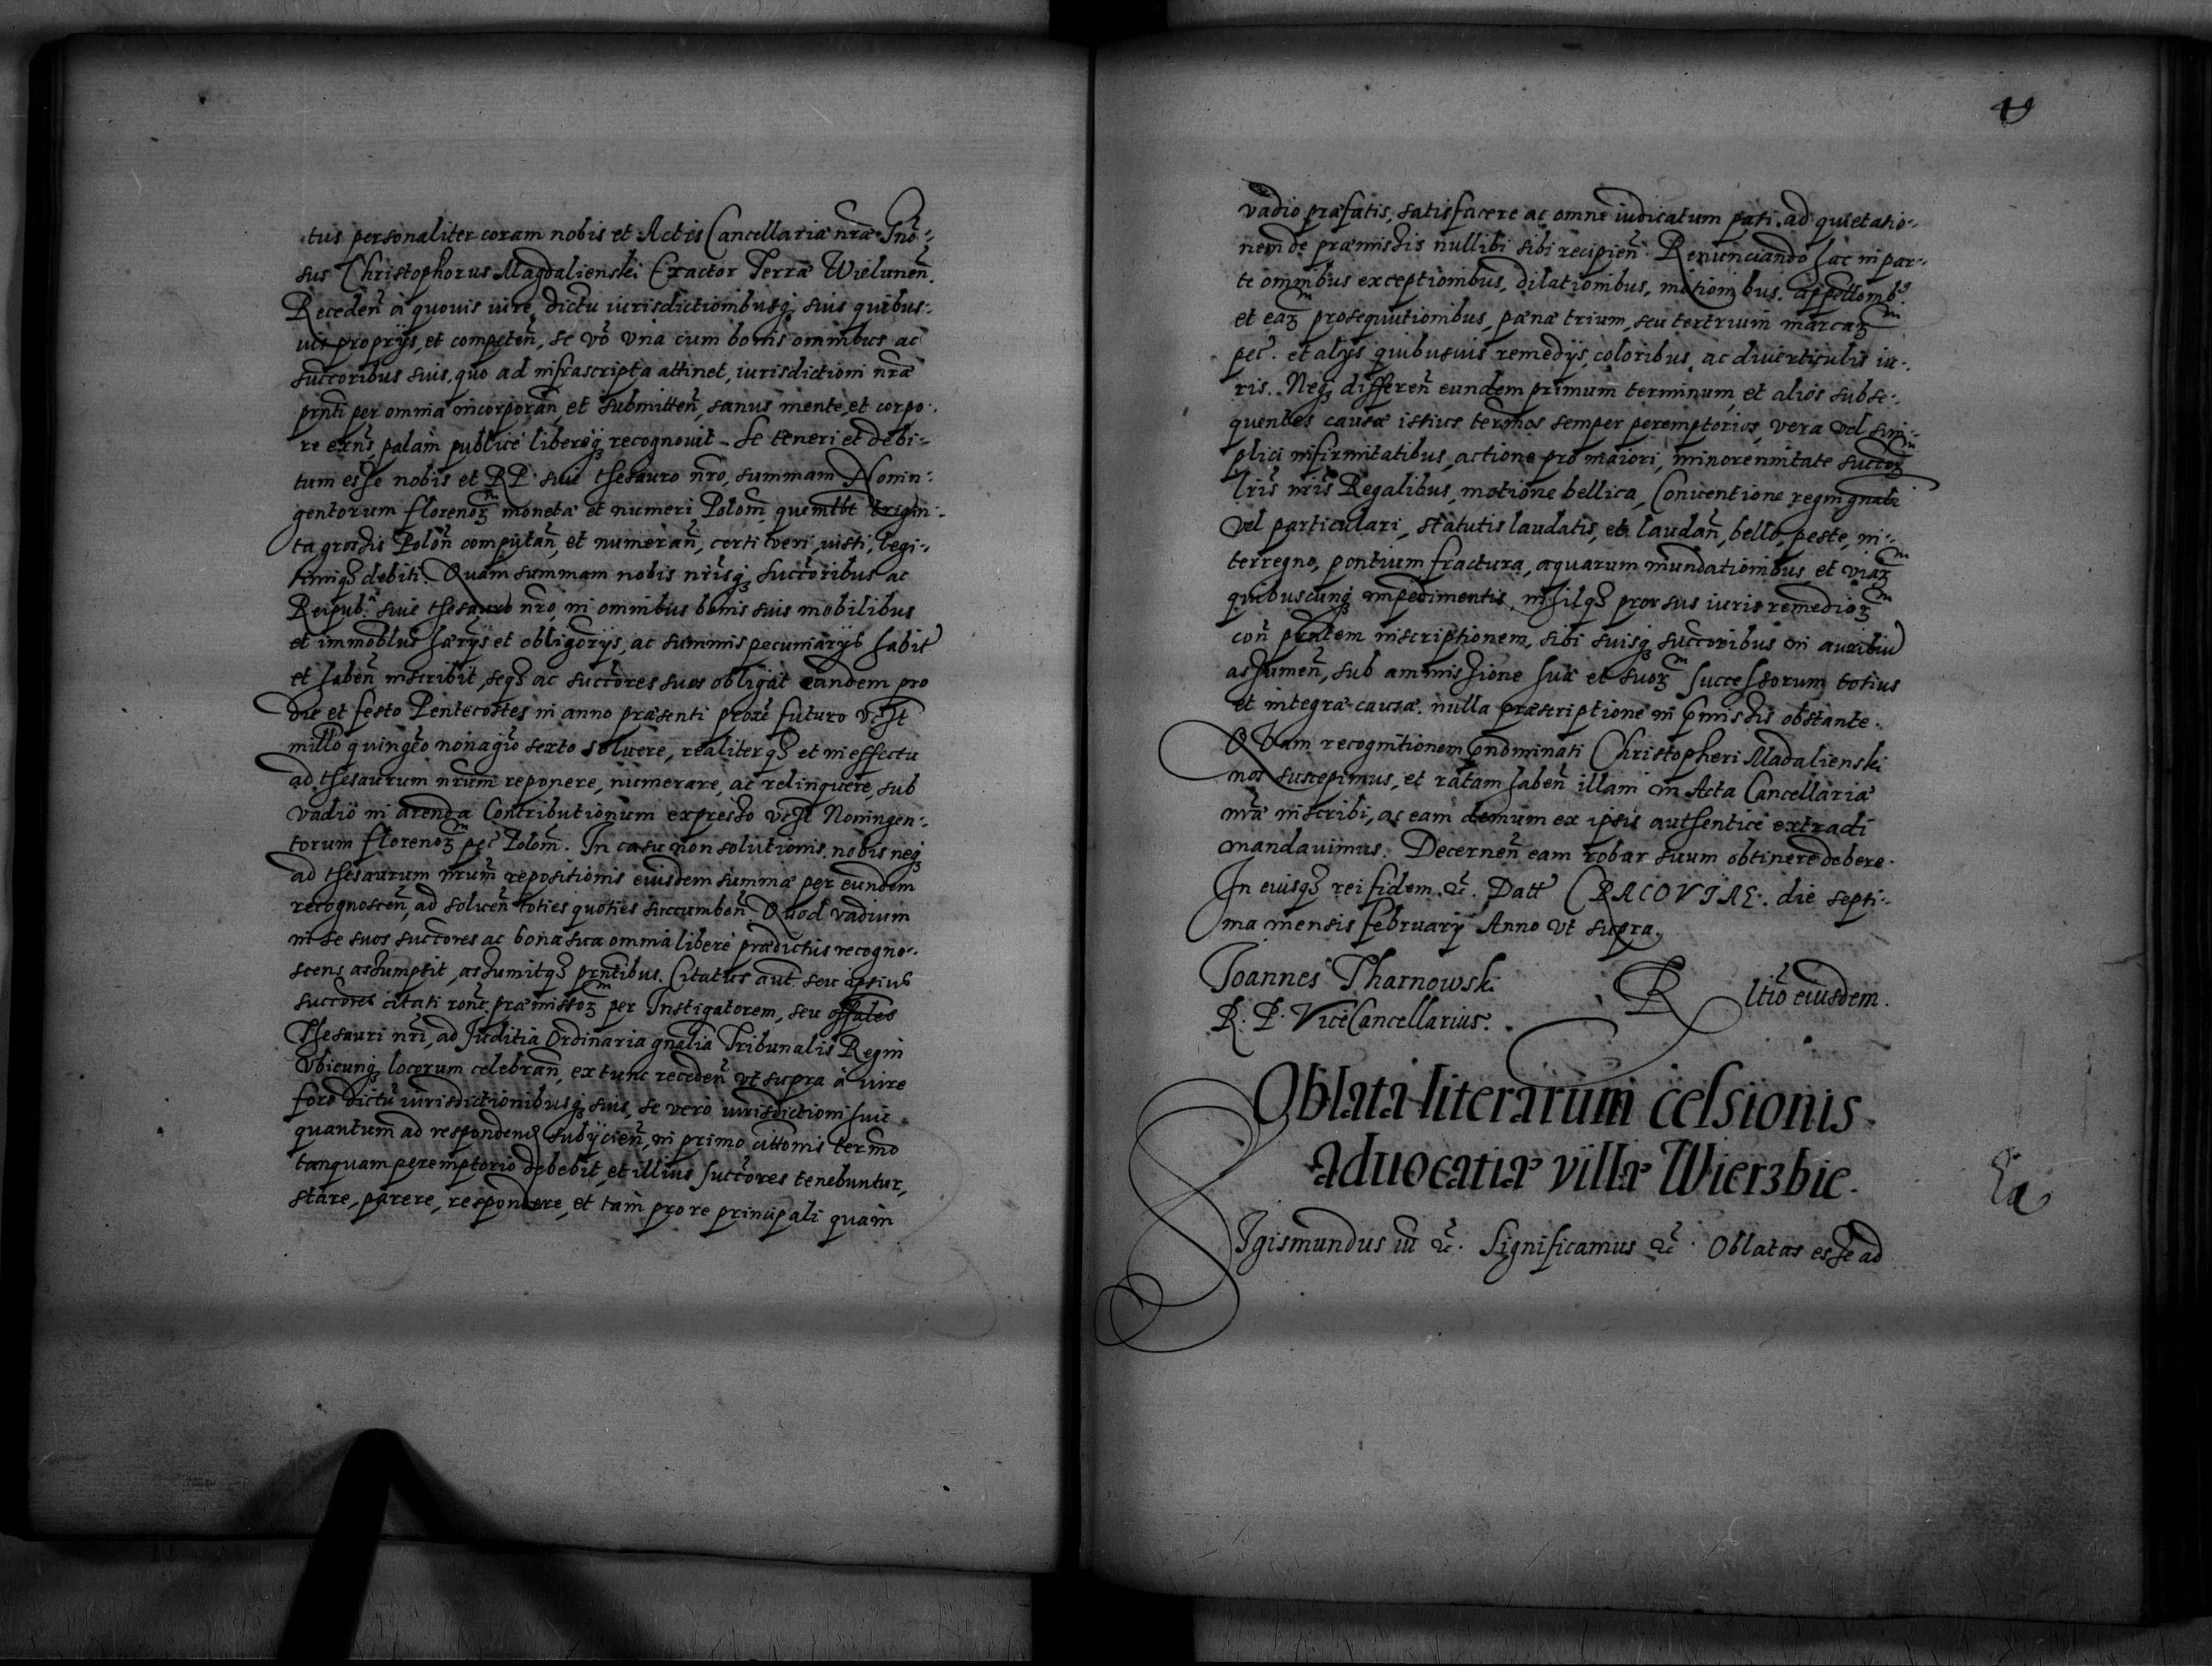 tus personaliter coram nobis et Actis Cancellariæ nr̃æ Gnõ-
sus Christophorus Magdalienski Exactor Terræ Wielunen̄.
Receden̄ à quouis iure, dictu iurisdictionibusq; suis quibus-
uis proprijs, et competen̄, se vō vna cum bonis omnibus ac
succoribus suis, quo ad infrascripta attinet, iurisdictioni nr̃æ
pn̄ti per omnia incorporan̄, et submitten̄, sanus mente, et corpo-
re exn̄s, palam publicè liberèq; recognouit. Se teneri et debi-
tum esse nobis et RP. siue thesauro nr̃o, summam Nonin-
gentorum florenoꝝ monetæ et numeri Polon̄, quemlbt trigin-
ta grossis Polon̄ computan̄, et numeran̄, certi, veri, iusti, legi-
timiq; debiti. Quam summam nobis nr̃isq; succoribus ac
Reipub: siue thesauro nr̃o, in omnibus bonis suis mobilibus
et immoblus hærijs et obligorijs, ac summis pecuniarijs habit
et haben̄ inscribit, seq; ac succores suos obligat eandem pro
die et festo Pentecostes in anno præsenti prox̄e futuro vclt
millō quingēo nonagiō sexto soluere, realiterq; et in effectu
ad thesaurum nr̃um reponere, numerare, ac relinquere, sub
vadio in arenda Contributionum expresso vclt Noningen-
torum florenoꝝ pec̄ Polon̄. In casu non solutionis, nobis neq;
ad thesaurum nr̃um repositionis eiusdem summæ per eundem
recognoscen̄, ad soluen̄ toties quoties succumben̄. Quod vadium
in se suos succores ac bona sua omnia liberè prædictus recogno-
scens assumpsit, assumitq; pn̄tibus. Citatus aut seu ipsius
succores citati rone præmissoꝝ per Instigatorem, seu offales
Thesauri nr̃i, ad Juditia Ordinaria gn̄alia Tribunalis Regni
vbicunq; locorum celebran̄, ex tunc receden̄ vt supra à iure
foro dictu iurisdictionibusq; suis, se verò iurisdictioni huic
quantum ad respondend̄ subijcien̄, in primo cittonis termō
tanquam peremptorio debebit, et illius succores tenebuntur,
stare, parere, respondere, et tam pro re principali quam
vadio præfatis, satisfacere ac omne iudicatum pati, ad quietatio-
nem de præmissis nullibi sibi recipien̄. Renunciando hac in par-
te omnibus exceptionibus, dilationibus, motionibus, appellomb9
et eaꝝ prosequutionibus, pænæ trium, seu tertrium marcaꝝ
pec̄. et alijs quibusuis remedijs, coloribus, ac diuerticulis iu-
ris. Neq; differen̄ eundem primum terminum, et alios subse-
quentes causæ istius termōs semper peremptorios, vera vel sim-
plici infirmitatibus, actione pro maiori, minorennitate succoꝝ
lr̃is nr̃is Regalibus, motione bellica, Conuentione regni gn̄ali
vel particulari, statutis laudatis, et laudan̄, bello, peste, in-
terregno, pontium fractura, aquarum inundationibus, et viaꝝ
quibuscunq; impedimentis, nihilq; prorsus iuris remedioꝝ
con̄ pn̄tem inscriptionem, sibi suisq; succoribus in auxiliū
assumen̄, sub ammissione suæ et suoꝝ successorum totius
et integræ causæ, nulla præscriptione in p̄missis obstante.
Quam recognitionem p̄nominati Christopheri Madalienski
nos suscepimus, et ratam haben̄ illam in Acta Cancellariæ
nr̃æ inscribi, ac eam demum ex ipsis authenticè extradi
mandauimus. Decernen̄ eam robur suum obtinere debere.
In cuiusq; rei fidem &c̄. Datt̄ CRACOVIAE. die septi-
ma mensis february Anno vt supra.
Joannes Tharnowski
R. P. ViceCancellarius.
R ltiō eiusdem.
Oblata literarum celsionis
aduocatiæ villæ Wierzbie.
Sigismundus iii &c̄. Significamus &c̄. Oblatas esse ad